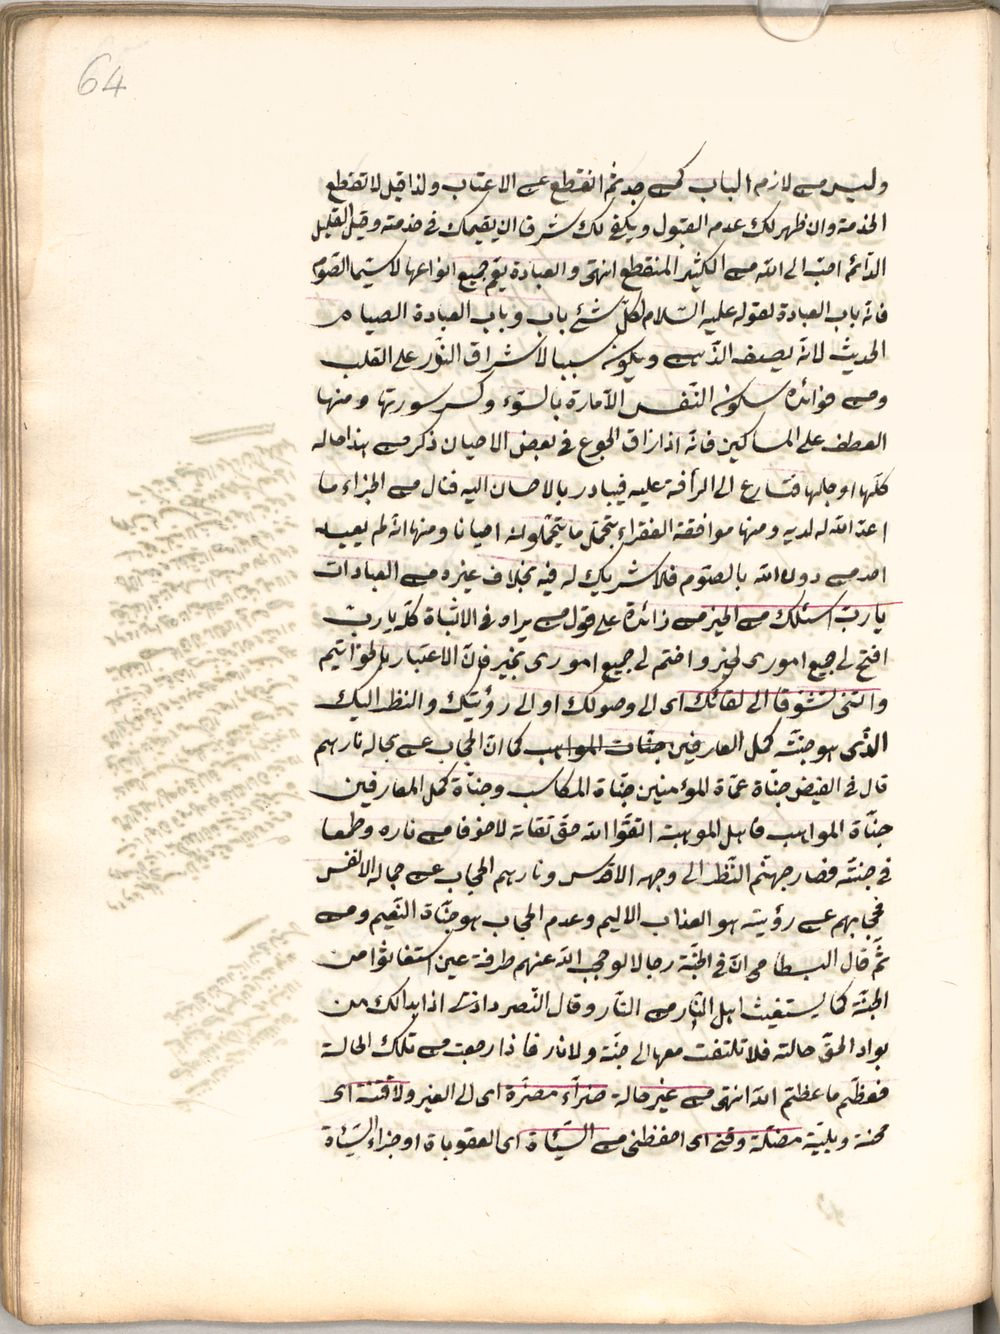 64
وليس من لازم الباب كمن جد ثم انقطع عن الاعتاب ولذا قيل لا تقطع
الخدمة وان ظهر لك عدم القبول ويكفي لك شرفا ان يقيمك في خدمته وقيل القليل
الدائم احب الى الله من الكثير المنقطع انتهى والعبادة يعم جميع انواعها لا سيما الصوم
فانه باب العبادة لقوله عليه السلام لكل شئ باب وباب العبادة الصيام
الحديث لانه يصفى الذهن ويكون سببا لاشراق النور على القلب
ومن فوائده سكون النفس الامارة بالسوء وكسر سورتها ومنها
العطف على المساكين فانه اذا ذاق الجوع في بعض الاحيان ذكر من هذا حاله
كلها او جلها فتسارع الى الرأفة عليه فيبادر بالاحسان اليه فنال من الجزاء ما
اعد الله له لديه ومنها موافقة الفقراء بتحمل ما يتحملونه احيانا ومنها انه لم يعبد
احد من دون الله بالصوم فلا شريك له فيه بخلاف غيره من العبادات
يا رب اسئلك من الخير من زائدة على قول من يراه في الاثباة كله يا رب
افتح لي جميع اموری بخير واختم لي جميع اموری بخير فان الاعتبار بالخواتيم
واتنى تشوقا الى لقائك ای الى وصولك او الى رؤيتك والنظر اليك
الذی هو جنة كمل العارفين جنات المواهب كما ان الحجاب عن جماله نارهم
قال في الفيض جناة عماة المؤمنين جناة المكاسب وجناة كمل العارفين
جناة المواهب فاهل الموهبة اتقوا الله حق تقاته لا خوفا من ناره وطمعا
في جنته فصار جهنم النظر الى وجهه الاقدس ونارهم الحجاب عن جماله الانفس
فحجابهم عن رؤيته هو العذاب الاليم وعدم الحجاب هو جناة النعيم ومن
ثم قال البسطامى ان في الجنة رجالا لو حجب الله عنهم طرفة عين استغاثوا من
الجنة كما يستغيث اهل النار من النار وقال النصرداذى اذا بدا لك من
بواد الحق حالته فلا تلتفت معها الى جنة ولا نار فاذا رجعت من تلك الحالة
فعظم ما عظم الله انتهى من غير حالة ضراء مضرة ای الى الغير ولا فتنة ای
محنة وبلية مضلة وقنى ای احفظنى من السيئاة ای العقوباة او جزاء السيئاة